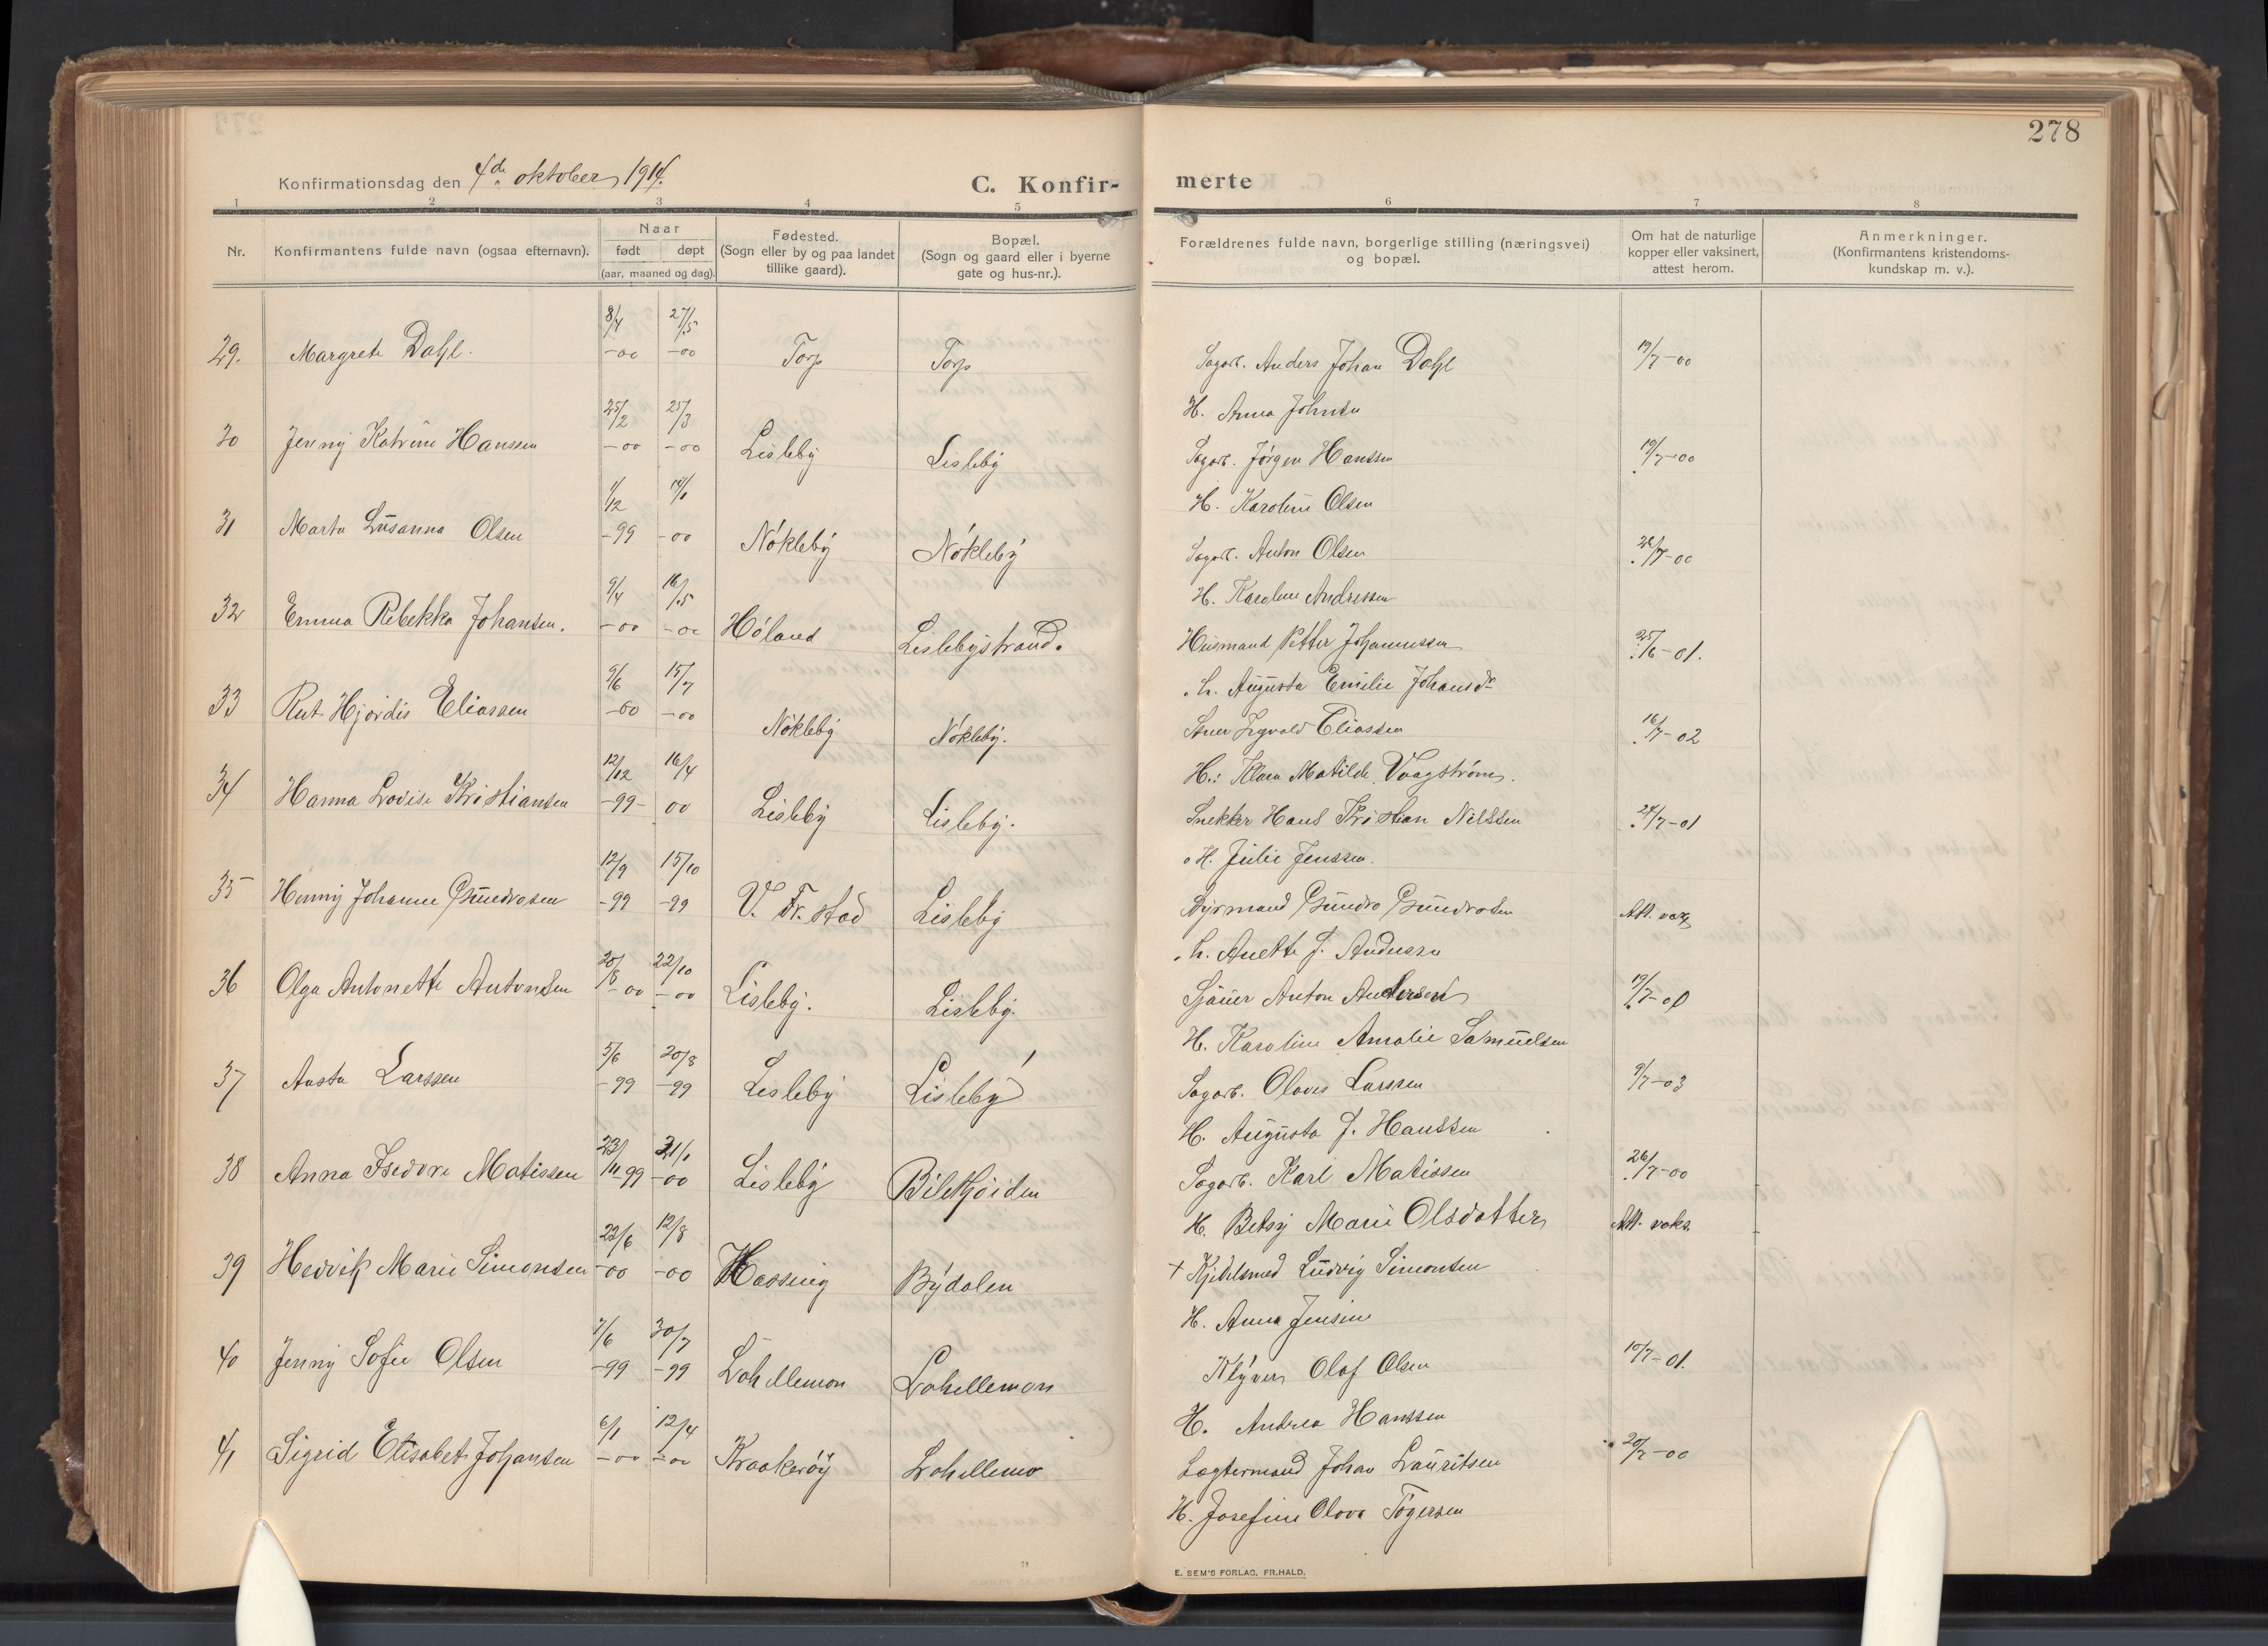 278
Konfirmationsdag den 4de oktober 1914.
C. Konfir-
merte
1 2 3 4 5 6 7 8
Nr.
Konfirmantens fulde navn (ogsaa efternavn).
Naar
født døpt
(aar, maaned og dag).
Fødested.
(Sogn eller by og paa landet
tillike gaard).
Bopæl.
(Sogn og gaard eller i byerne
gate og hus-nr.).
Forældrenes fulde navn, borgerlige stilling (næringsvei)
og bopæl.
Om hat de naturlige
kopper eller vaksinert,
attest herom.
Anmerkninger.
(Konfirmantens kristendoms-
kundskap m. v.).
8/4 27/5
29. Margrete Dahl. -00 -00 Torp Torp Sagarb. Anders Johan Dahl 19/7-00
H. Anna Johnsen
25/2 25/3
30 Jenny Katrine Hanssen -00 -00 Lisleby Lisleby Sagarb. Jørgen Hanssen 19/7-00
H. Karoline Olsen
1/12 14/1
31 Marta Susanna Olsen -99 -00 Nökleby Nökleby Sagarb. Anton Olsen /7-00
H. Karoline Andressen
9/4 16/5
32 Emma Rebekka Johansen. -00 -00 Höland Lislebystrand. Husmand Petter Johannessen 25/6-01.
h. Augusta Emilie Johansdr
9/6 15/7
33 Rut Hjördis Eliassen -00 -00 Nökleby Nökleby. Ingvald Eliassen 16/7-02
H.: Klara Matilde Vaagström.
12/12 16/4
34 Hanna Lovise Kristiansen -99- 00 Lisleby Lisleby. Snekker Hans Kristian Nilssen 24/7-01
H. Julie Jenssen.
12/9 15/10
35 Henny Johanne Gundrosen -99 -99 V. Fr.stad Lisleby Gundro Gundrosen Att. vax
h. Anette J. Andersen
20/8 22/10
36 Olga Antonette Antonsen -00 -00 Lisleby. Lisleby. Sjauer Anton Andersen 19/7-01
H. Karoline Amalie Samuelsen
5/6 20/8
37 Aasta Larssen -99 -99 Lisleby Lisleby Sagarb. Olaves Larssen 9/7-03
H. Augusta J. Hanssen
23/11 21/1
38 Anna Isedore Matissen -99 -00 Lisleby Bilekjöiden Sagarb. Karl Matissen 26/7-00
H. Betsy Marie Olsdatter Att. vaks.
22/6 12/8
39 Hedvik Marie Simonsen -00 -00 Hassing Bydalen + Kjedelsmed Ludvig Simonsen
H. Anna Jensine
7/6 30/7
40 Jenny Sofie Olsen -99 -99 Lohellemon Lohellemon Klyver Olaf Olsen 10/7-01.
H. Andrea Hanssen
6/1 12/4
41 Sigrid Elisabet Johansen -00 -00 Kraakeröy Lohellemo Lægtermand Johan Lauritsen 20/7-00
H. Josefine Olava Tögersen
E. SEM'S FORLAG, FR.HALD.